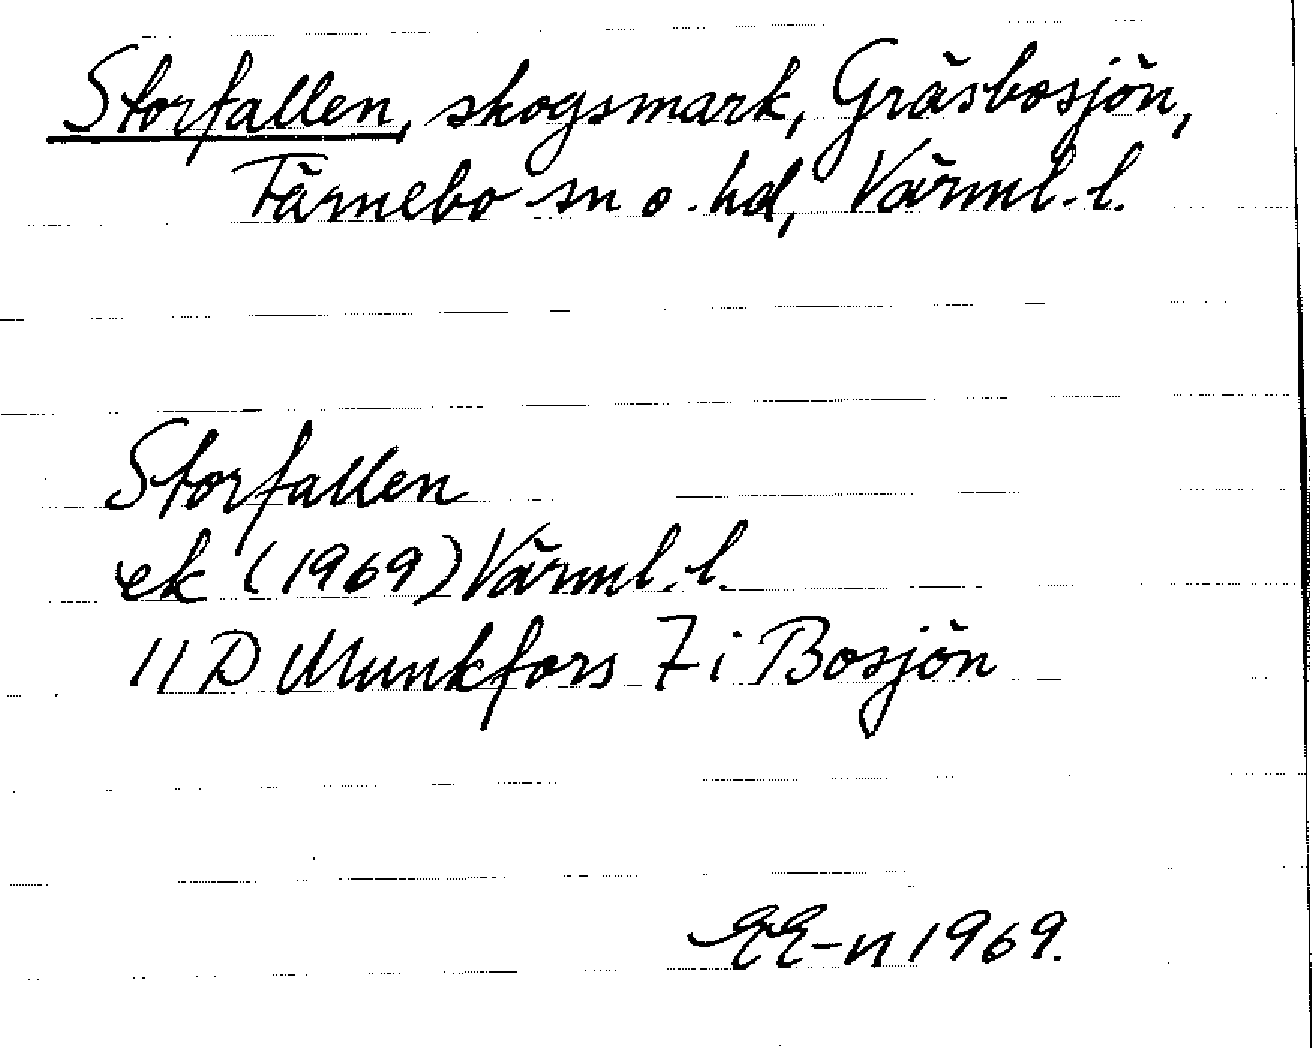 Storfallen, skogsmark, Gräsbosjön,
Färnebo sn o. hd, Värml. l.
Storfallen
ek (1969) Värml. l.
11 D Munkfors 7 i Bosjön
EE-n 1969.